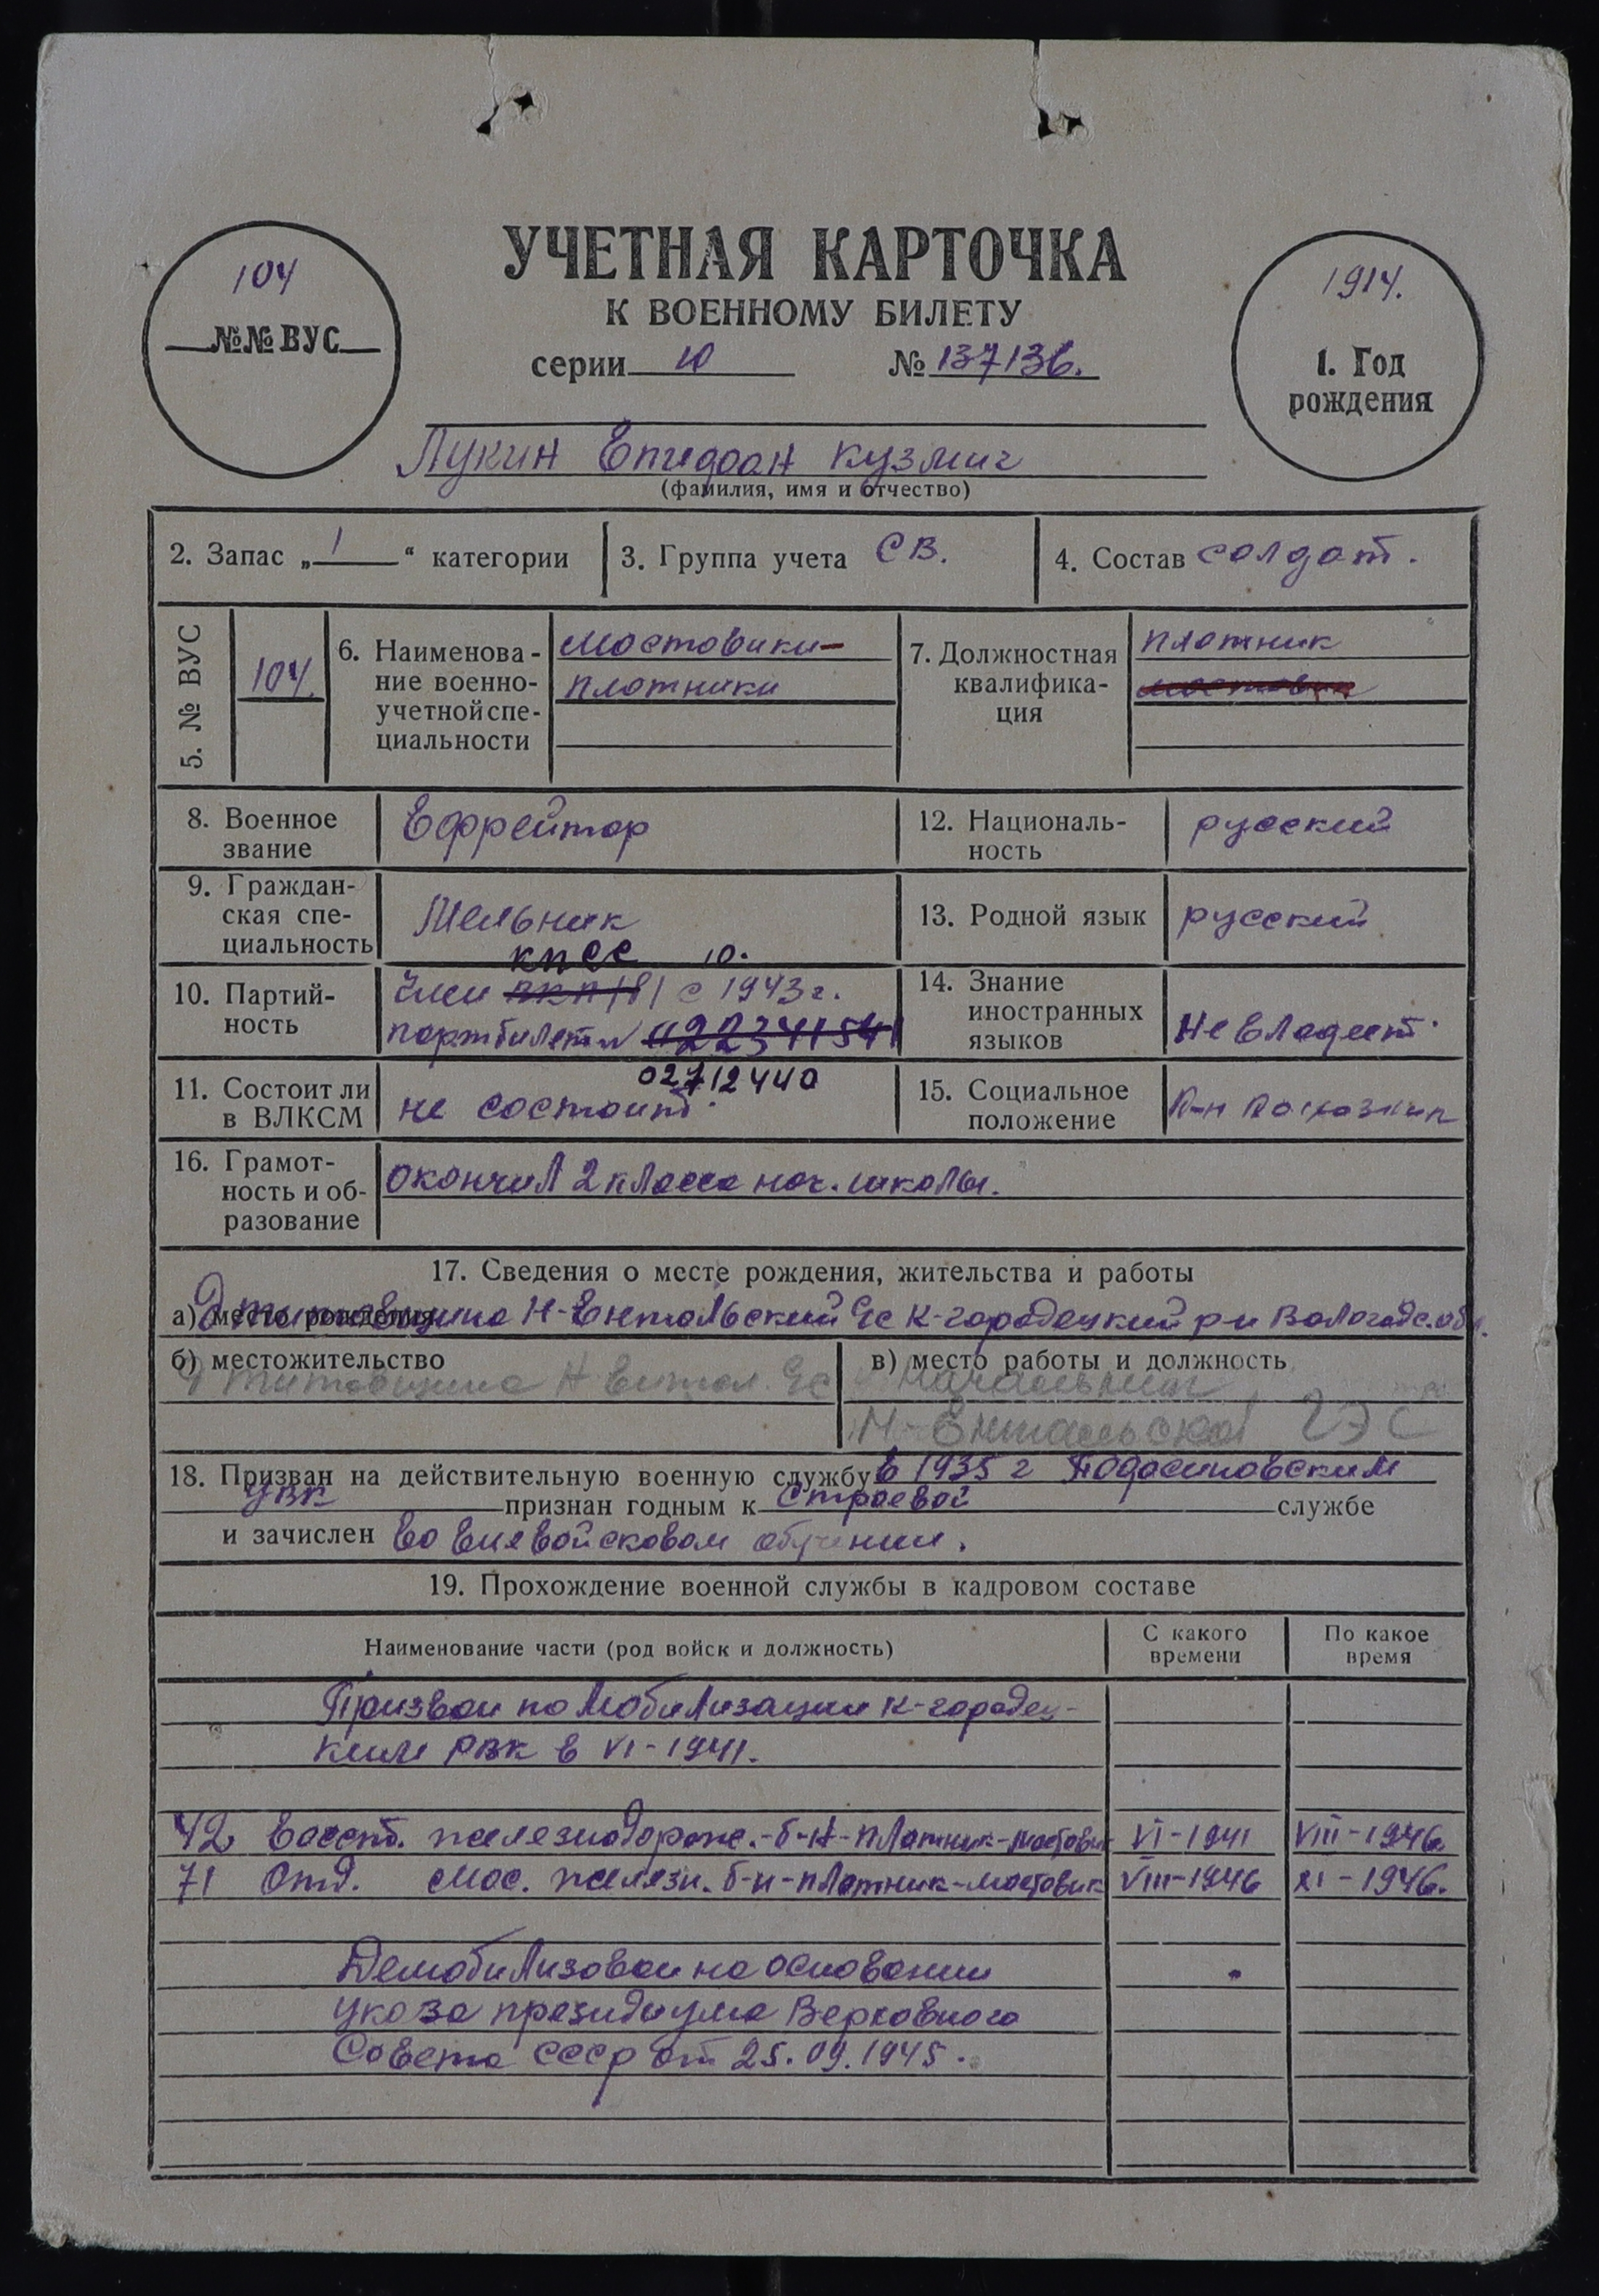 УЧЕТНАЯ КАРТОЧКА
К ВОЕННОМУ БИЛЕТУ
серии Ю № 137136.
104
№№ ВУС
1914.
1. Год
рождения
Лукин Кузмич
(фамилия, имя и отчество)
2. Запас „ 1 “ категории
3. Группа учета СВ.
4. Состав солдат.
5. № ВУС
104.
6. Наименова-
ние военно-
учетной спе-
циальности
мостовики-
плотники
7. Должностная
квалифика-
ция
плотник
мостовик
8. Военное
звание
Ефрейтор
12. Националь-
ность
русский
9. Граждан-
ская спе-
циальность
Мельник
13. Родной язык
русский
10. Партий-
ность
кпсс
член вкп/б/ с 1943 г.
партбилет №
02712440
14. Знание
иностранных
языков
Не владеет.
11. Состоит ли
в ВЛКСМ
не состоит.
15. Социальное
положение
к-н колхозник
16. Грамот-
ность и об-
разование
окончил 2 класса нач. школы.
17. Сведения о месте рождения, жительства и работы
а) место рождения Н-Ентальский с/с К-городецкий р-н Вологодс. обл.
б) местожительство
в) место работы и должность
Начальник
Н-Ентальской ГЭС
18. Призван на действительную военную службу в 1935 г Подосиновским
УВК признан годным к строевой службе
и зачислен во вневойсковом обучении.
19. Прохождение военной службы в кадровом составе
Наименование части (род войск и должность)
С какого
времени
По какое
время
Призван по мобилизации К-городец-
ким РВК в VI-1941.
42 восст. железнодорож.-б-н-плотник-мостовик VI-1941 VIII-1946
71 Отд. мос. железн. б-н-плотник-мостовик VIII-1946 XI-1946.
Демобилизован на основании
указа президиума Верховного
Совета СССР от 25.09.1945.